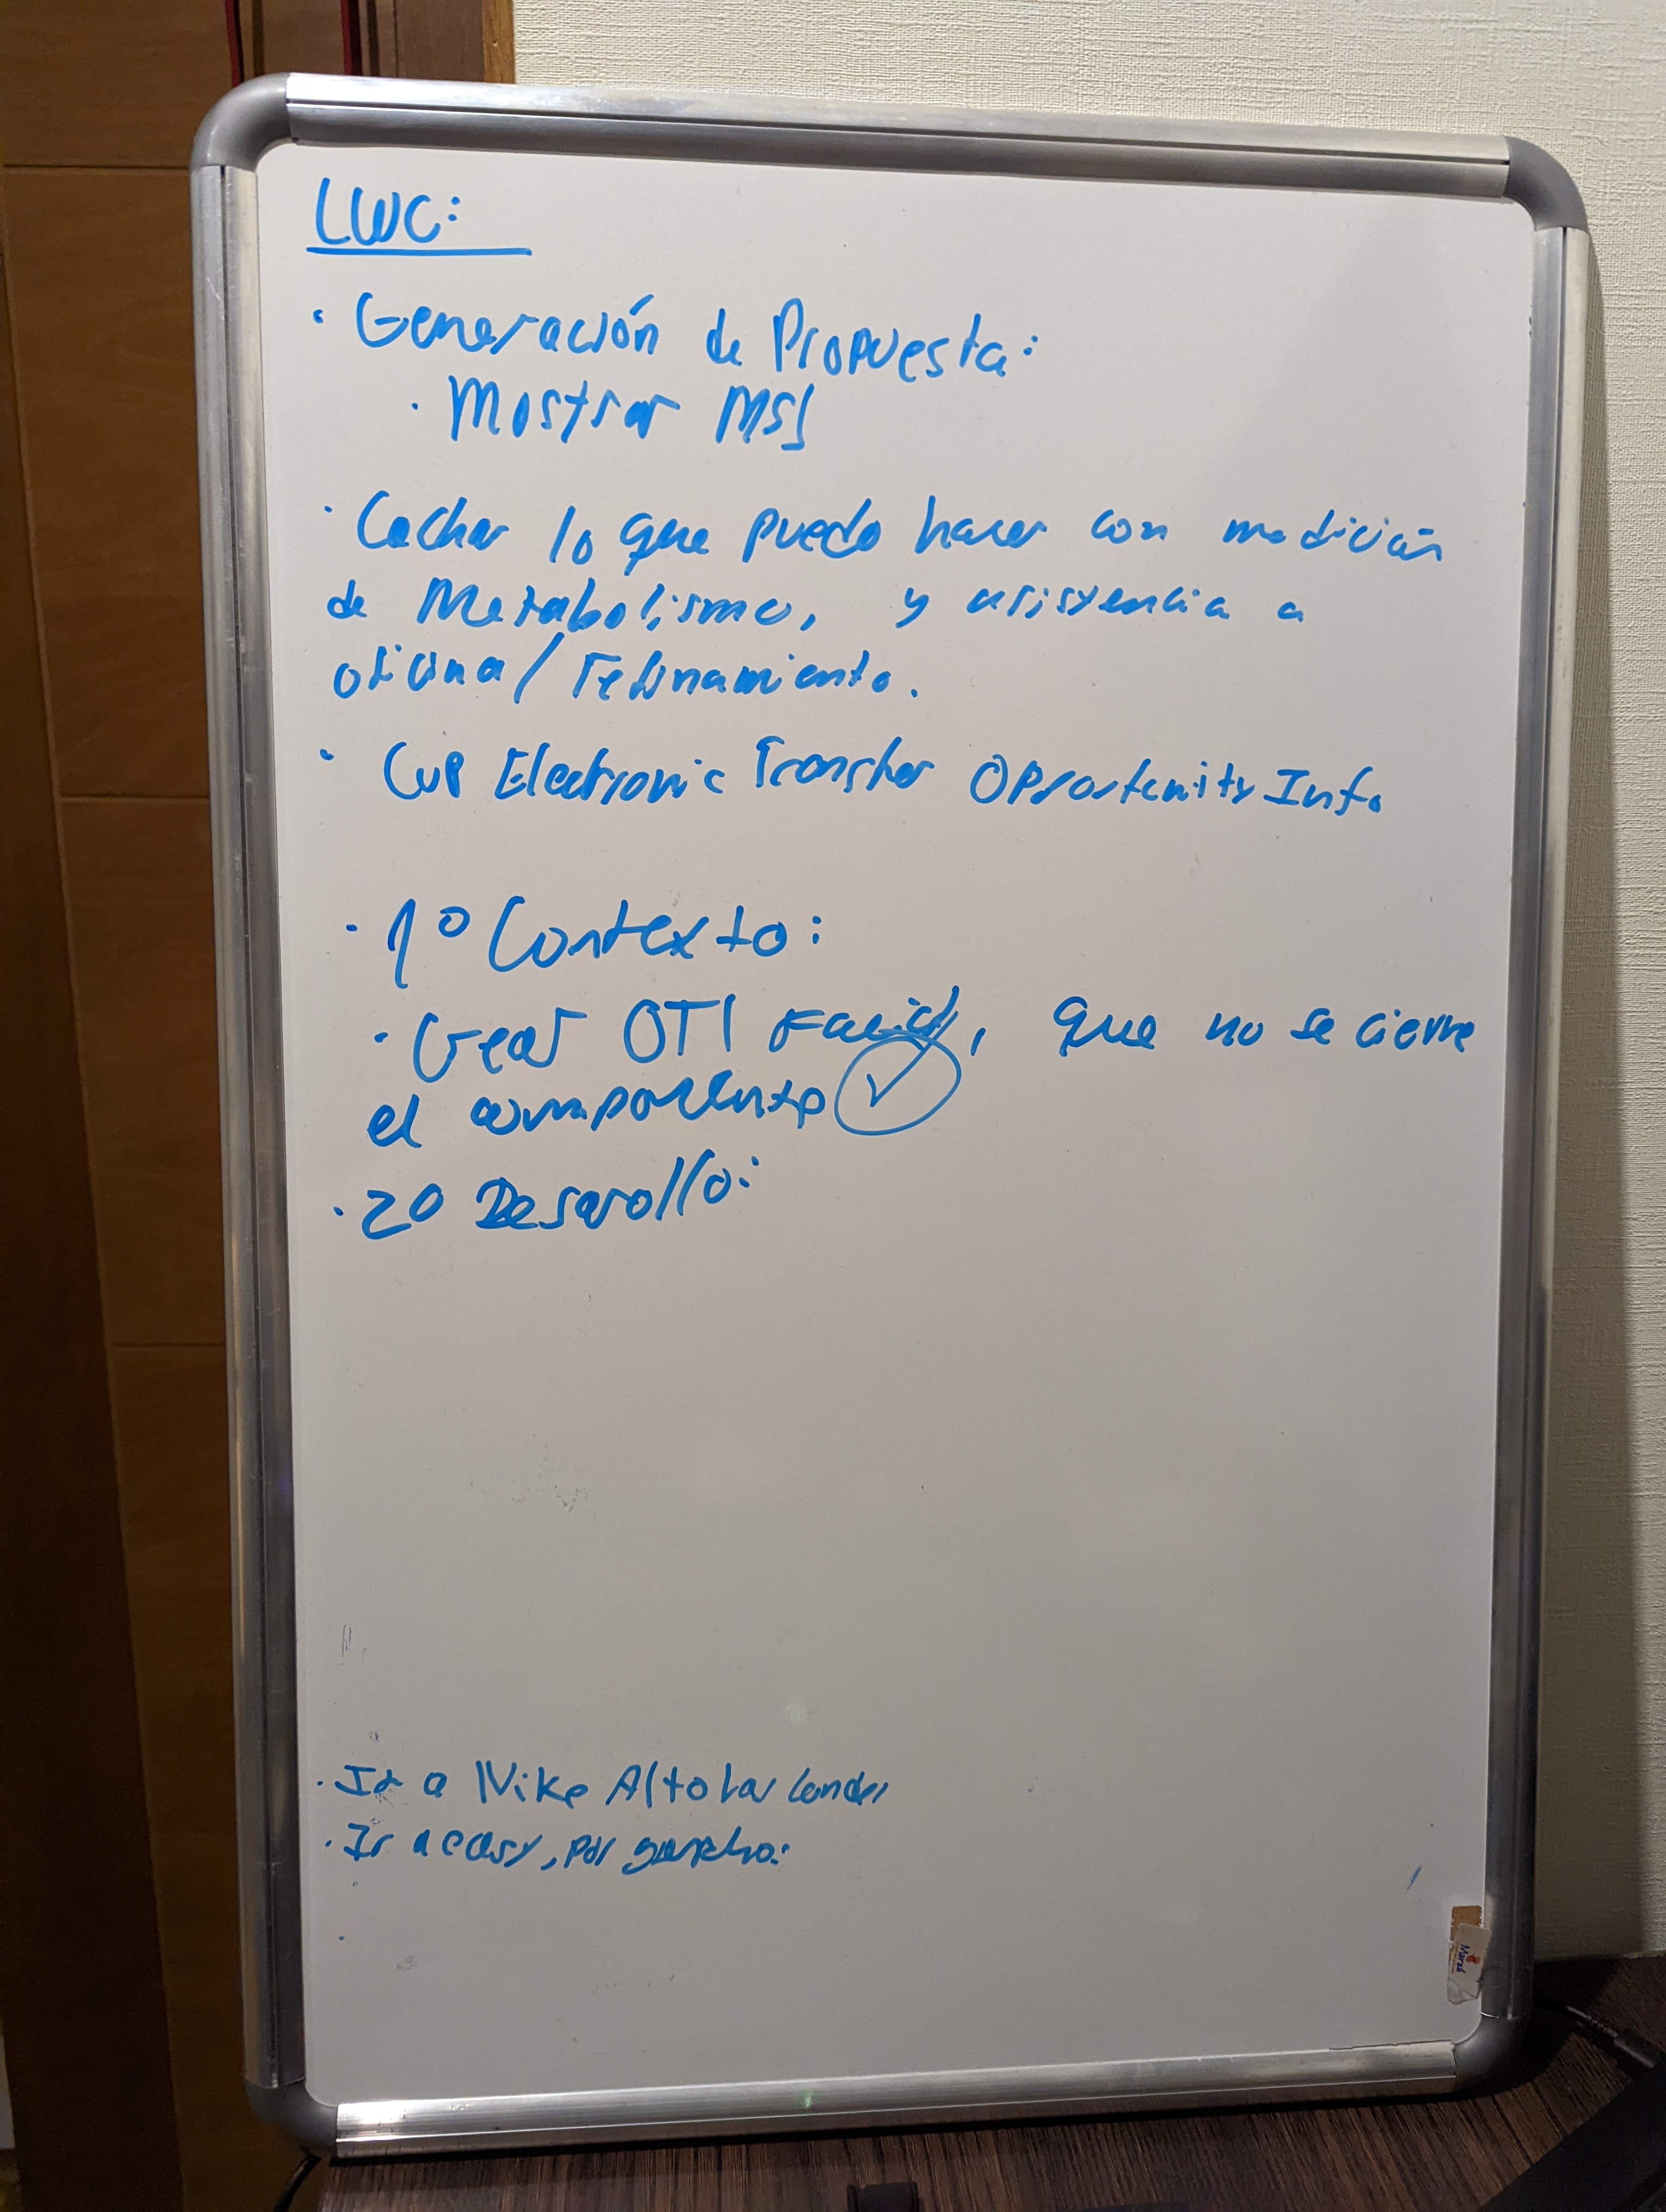 LWC:
· Generación de Propuesta:
· Mostrar MSJ
· Cachar lo que puedo hacer con medición
de Metabolismo, y asistencia a
oficina/refinamiento.
· CVP Electronic Transfer Opportunity Info
· 1º Contexto:
· Crear OTI, que no se cierre
el componente
· 2º Desarollo:
· Ir a Nike Alto Las Condes
· Ir a easy, por gancho: